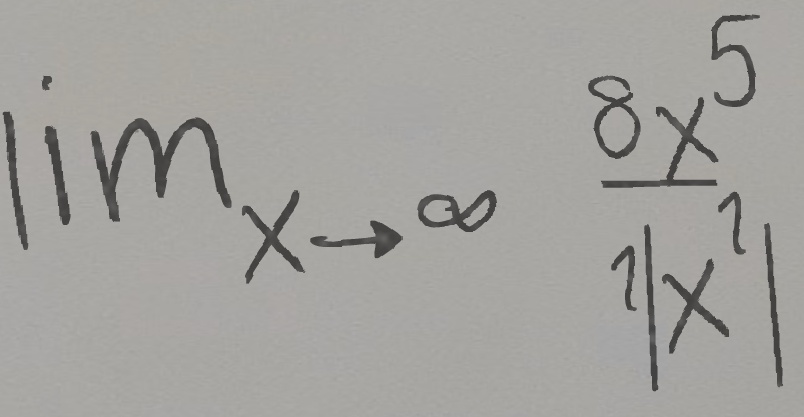 \lim_{x \to \infty} \frac{8x^5}{1|x^1|}